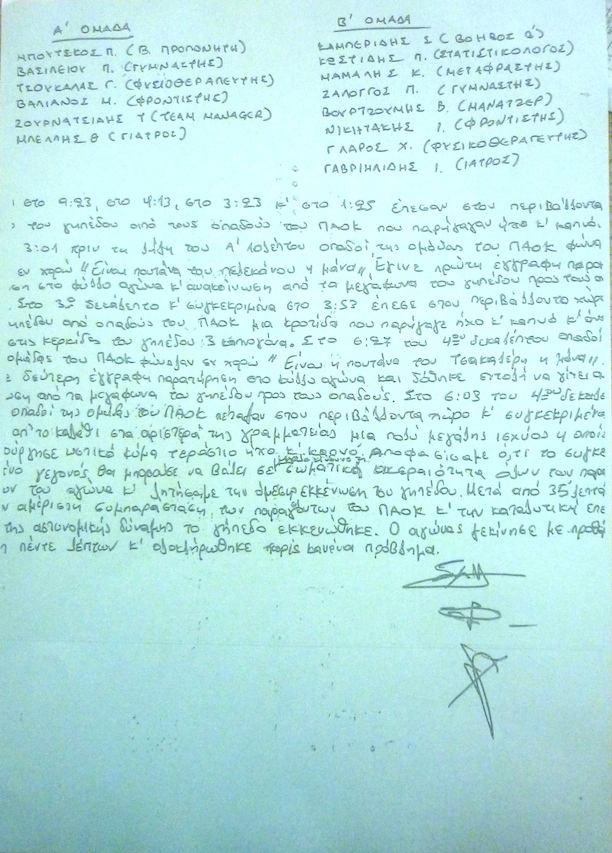 Α' ΟΜΑΔΑ
ΜΠΟΥΤΣΚΟΣ Π. (Β. ΠΡΟΠΟΝΗΤΗ)
ΒΑΣΙΛΕΙΟΥ Π. (ΓΥΜΝΑΣΤΗΣ)
ΤΣΟΥΚΑΛΑΣ Γ. (ΦΥΣΙΟΘΕΡΑΠΕΥΤΗΣ)
ΒΑΛΙΑΝΟΣ Μ. (ΦΡΟΝΤΙΣΤΗΣ)
ΖΟΥΡΝΑΤΣΙΔΗΣ Τ (TEAM MANAGER)
ΜΠΕΛΛΗΣ Θ (ΓΙΑΤΡΟΣ)
Β' ΟΜΑΔΑ
ΚΑΜΠΕΡΙΔΗΣ Σ (ΒΟΗΘΟΣ Α')
ΚΩΣΤΙΔΗΣ Π. (ΣΤΑΤΙΣΤΙΚΟΛΟΓΟΣ)
ΜΑΜΑΛΗΣ Κ. (ΜΕΤΑΦΡΑΣΤΗΣ)
ΖΑΛΟΓΓΟΣ Π. (ΓΥΜΝΑΣΤΗΣ)
ΒΟΥΡΤΖΟΥΜΗΣ Β. (ΜΑΝΑΤΖΕΡ)
ΝΙΚΗΤΑΚΗΣ Ι. (ΦΡΟΝΤΙΣΤΗΣ)
ΓΛΑΡΟΣ Χ. (ΦΥΣΙΚΟΘΕΡΑΠΕΥΤΗΣ)
ΓΑΒΡΙΗΛΙΔΗΣ Ι. (ΙΑΤΡΟΣ)
στο 9:23, στο 4:13, στο 3:23 κ' στο 1:25 έπεσαν στον περιβάλλοντα
του γηπέδου από τους οπαδούς του ΠΑΟΚ που παρήγαγαν ήχο κ' καπνό.
3:01 πριν τη λήξη του Α' 10λέπτου οπαδοί της ομάδας του ΠΑΟΚ φώνα
εν χορώ "Είναι πουτάνα του πελεκάνου η μάνα". Έγινε πρώτη έγγραφη παρα
ση στο φύλλο αγώνα κ' ανακοίνωση από τα μεγάφωνα του γηπέδου προς τους ο
Στο 3ο δεκάλεπτο κ' συγκεκριμένα στο 3:53 έπεσε στον περιβάλλοντα χώρο
γηπέδου από οπαδούς του ΠΑΟΚ μια κροτίδα που παρήγαγε ήχο κ' καπνό κ' άν
στις κερκίδες του γηπέδου 3 καπνογόνα. Στο 6:27 του 4ου δεκαλέπτου οπαδοί
ομάδας του ΠΑΟΚ φώναξαν εν χορώ "Είναι η πουτάνα του Τσακαλέρη η μάνα".
ε δεύτερη έγγραφη παρατήρηση στο φύλλο αγώνα και δόθηκε εντολή να γίνει α
νωση από τα μεγάφωνα του γηπέδου προς τους οπαδούς. Στο 6:03 του 4ου δεκαλέ
οπαδοί της ομάδας του ΠΑΟΚ πέταξαν στον περιβάλλοντα χώρο κ' συγκεκριμένα
απ' το καλάθι στα αριστερά της γραμματείας μια πολύ μεγάλης ισχύος η οποία
ούργησε ωστικό κύμα τεράστιο ήχο κ' καπνό. Αποφασίσαμε ότι το συγκε
ένο γεγονός θα μπορούσε να βάλει σε σωματική ακεραιότητα όλων των παρα
ον του αγώνα κ' ζητήσαμε την άμεση εκκένωση του γηπέδου. Μετά από 35 λεπτά
ν αμέριστη συμπαράσταση των παραγόντων του ΠΑΟΚ κ' την καταλυτική επέ
της αστυνομικής δύναμης το γήπεδο εκκενώθηκε. Ο αγώνας ξεκίνησε με προθέ
η πέντε λεπτών κ' ολοκληρώθηκε χωρίς κανένα πρόβλημα.